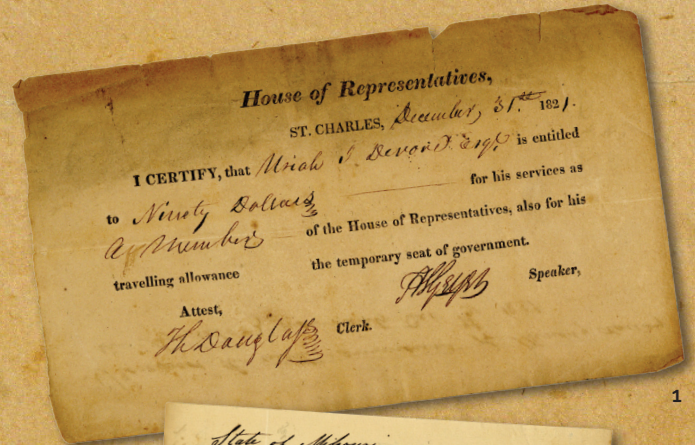 House of Representatives,
ST. CHARLES, December, 31.st 1821.
I CERTIFY, that Uriah J Devore Esqr is entitled
to Ninety Dollars for his services as
a Member of the House of Representatives, also for his
travelling allowance the temporary seat of government.
Speaker,
Attest,
Th Douglass Clerk.
1
State of Missouri